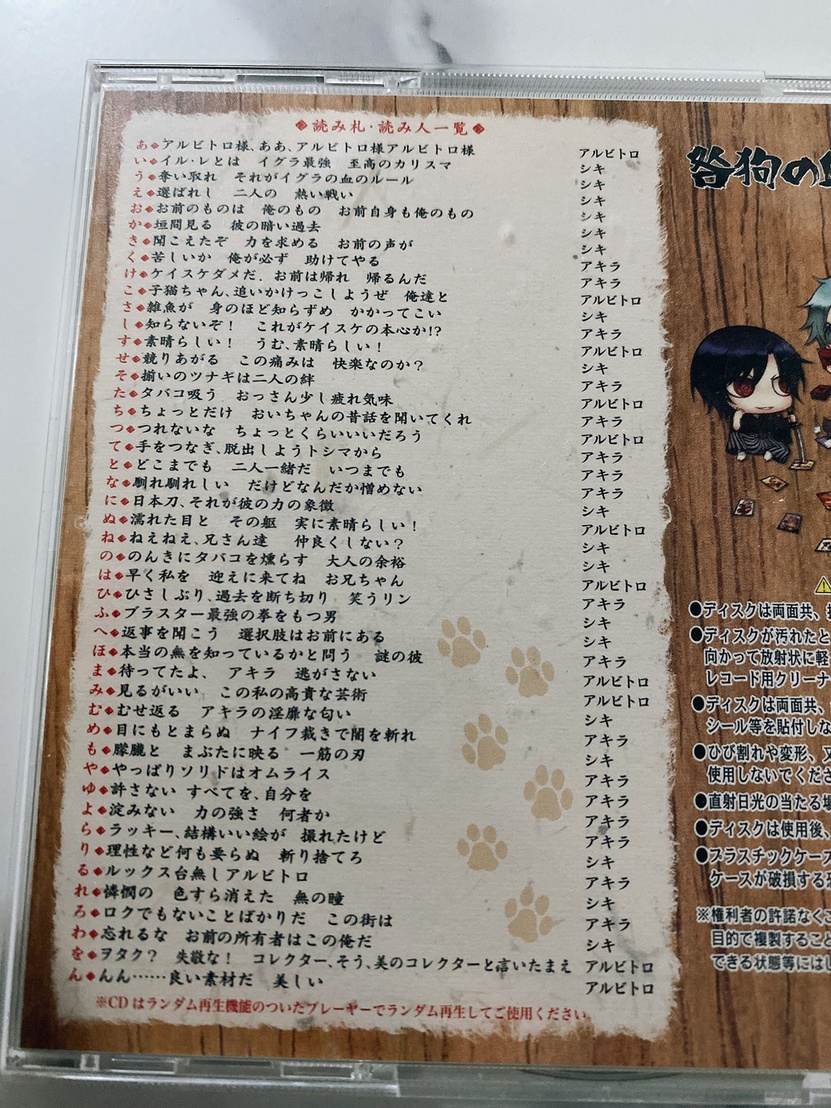 ◆読み札・読み人一覧◆
あ◆アルビトロ様、ああ、アルビトロ様アルビトロ様 アルビトロ
い◆イル・レとは　イグラ最強　至高のカリスマ シキ
う◆奪い取れ　それがイグラの血のルール シキ
え◆選ばれし　二人の　熱い戦い シキ
お◆お前のものは　俺のもの　お前自身も俺のもの シキ
か◆垣間見る　彼の暗い過去 シキ
き◆聞こえたぞ　力を求める　お前の声が シキ
く◆苦しいか　俺が必ず　助けてやる アキラ
け◆ケイスケダメだ、お前は帰れ　帰るんだ アキラ
こ◆子猫ちゃん、追いかけっこしようぜ　俺達と アルビトロ
さ◆雑魚が　身のほど知らずめ　かかってこい シキ
し◆知らないぞ！　これがケイスケの本心か!? アキラ
す◆素晴らしい！　うむ、素晴らしい！ アルビトロ
せ◆競りあがる　この痛みは　快楽なのか？ シキ
そ◆揃いのツナギは二人の絆 アキラ
た◆タバコ吸う　おっさん少し疲れ気味 アルビトロ
ち◆ちょっとだけ　おいちゃんの昔話を聞いてくれ アキラ
つ◆つれないな　ちょっとくらいいいだろう アルビトロ
て◆手をつなぎ、脱出しようトシマから アキラ
と◆どこまでも　二人一緒だ　いつまでも アキラ
な◆馴れ馴れしい　だけどなんだか憎めない アキラ
に◆日本刀、それが彼の力の象徴 シキ
ぬ◆濡れた目と　その躯　実に素晴らしい！ アルビトロ
ね◆ねえねえ、兄さん達　仲良くしない？ シキ
の◆のんきにタバコを燻らす　大人の余裕 シキ
は◆早く私を　迎えに来てね　お兄ちゃん アルビトロ
ひ◆ひさしぶり、過去を断ち切り　笑うリン アキラ
ふ◆ブラスター最強の拳をもつ男 シキ
へ◆返事を聞こう　選択肢はお前にある シキ
ほ◆本当の無を知っているかと問う　謎の彼 アキラ
ま◆待ってたよ、　アキラ　逃がさない アルビトロ
み◆見るがいい　この私の高貴な芸術 アルビトロ
む◆むせ返る　アキラの淫靡な匂い シキ
め◆目にもとまらぬ　ナイフ裁きで闇を斬れ アキラ
も◆朦朧と　まぶたに映る　一筋の刃 シキ
や◆やっぱりソリドはオムライス アキラ
ゆ◆許さない すべてを、自分を アキラ
よ◆淀みない　力の強さ　何者か アキラ
ら◆ラッキー、結構いい絵が　撮れたけど アキラ
り◆理性など何も要らぬ　斬り捨てろ シキ
る◆ルックス台無しアルビトロ アキラ
れ◆憐憫の　色すら消えた　無の瞳 シキ
ろ◆ロクでもないことばかりだ　この街は アキラ
わ◆忘れるな　お前の所有者はこの俺だ シキ
を◆ヲタク？　失敬な！　コレクター、そう、美のコレクターと言いたまえ アルビトロ
ん◆んん……良い素材だ　美しい アルビトロ
※CDはランダム再生機能のついたプレーヤーでランダム再生してご使用ください。
咎狗の
●ディスクは両面共、
●ディスクが汚れたと
向かって放射状に軽
レコード用クリーナ
●ディスクは両面共、
シール等を貼付しな
●ひび割れや変形、又
使用しないでくださ
●直射日光の当たる場
●ディスクは使用後、
●プラスチックケース
ケースが破損する恐
※権利者の許諾なくこ
目的で複製すること
できる状態等にはし